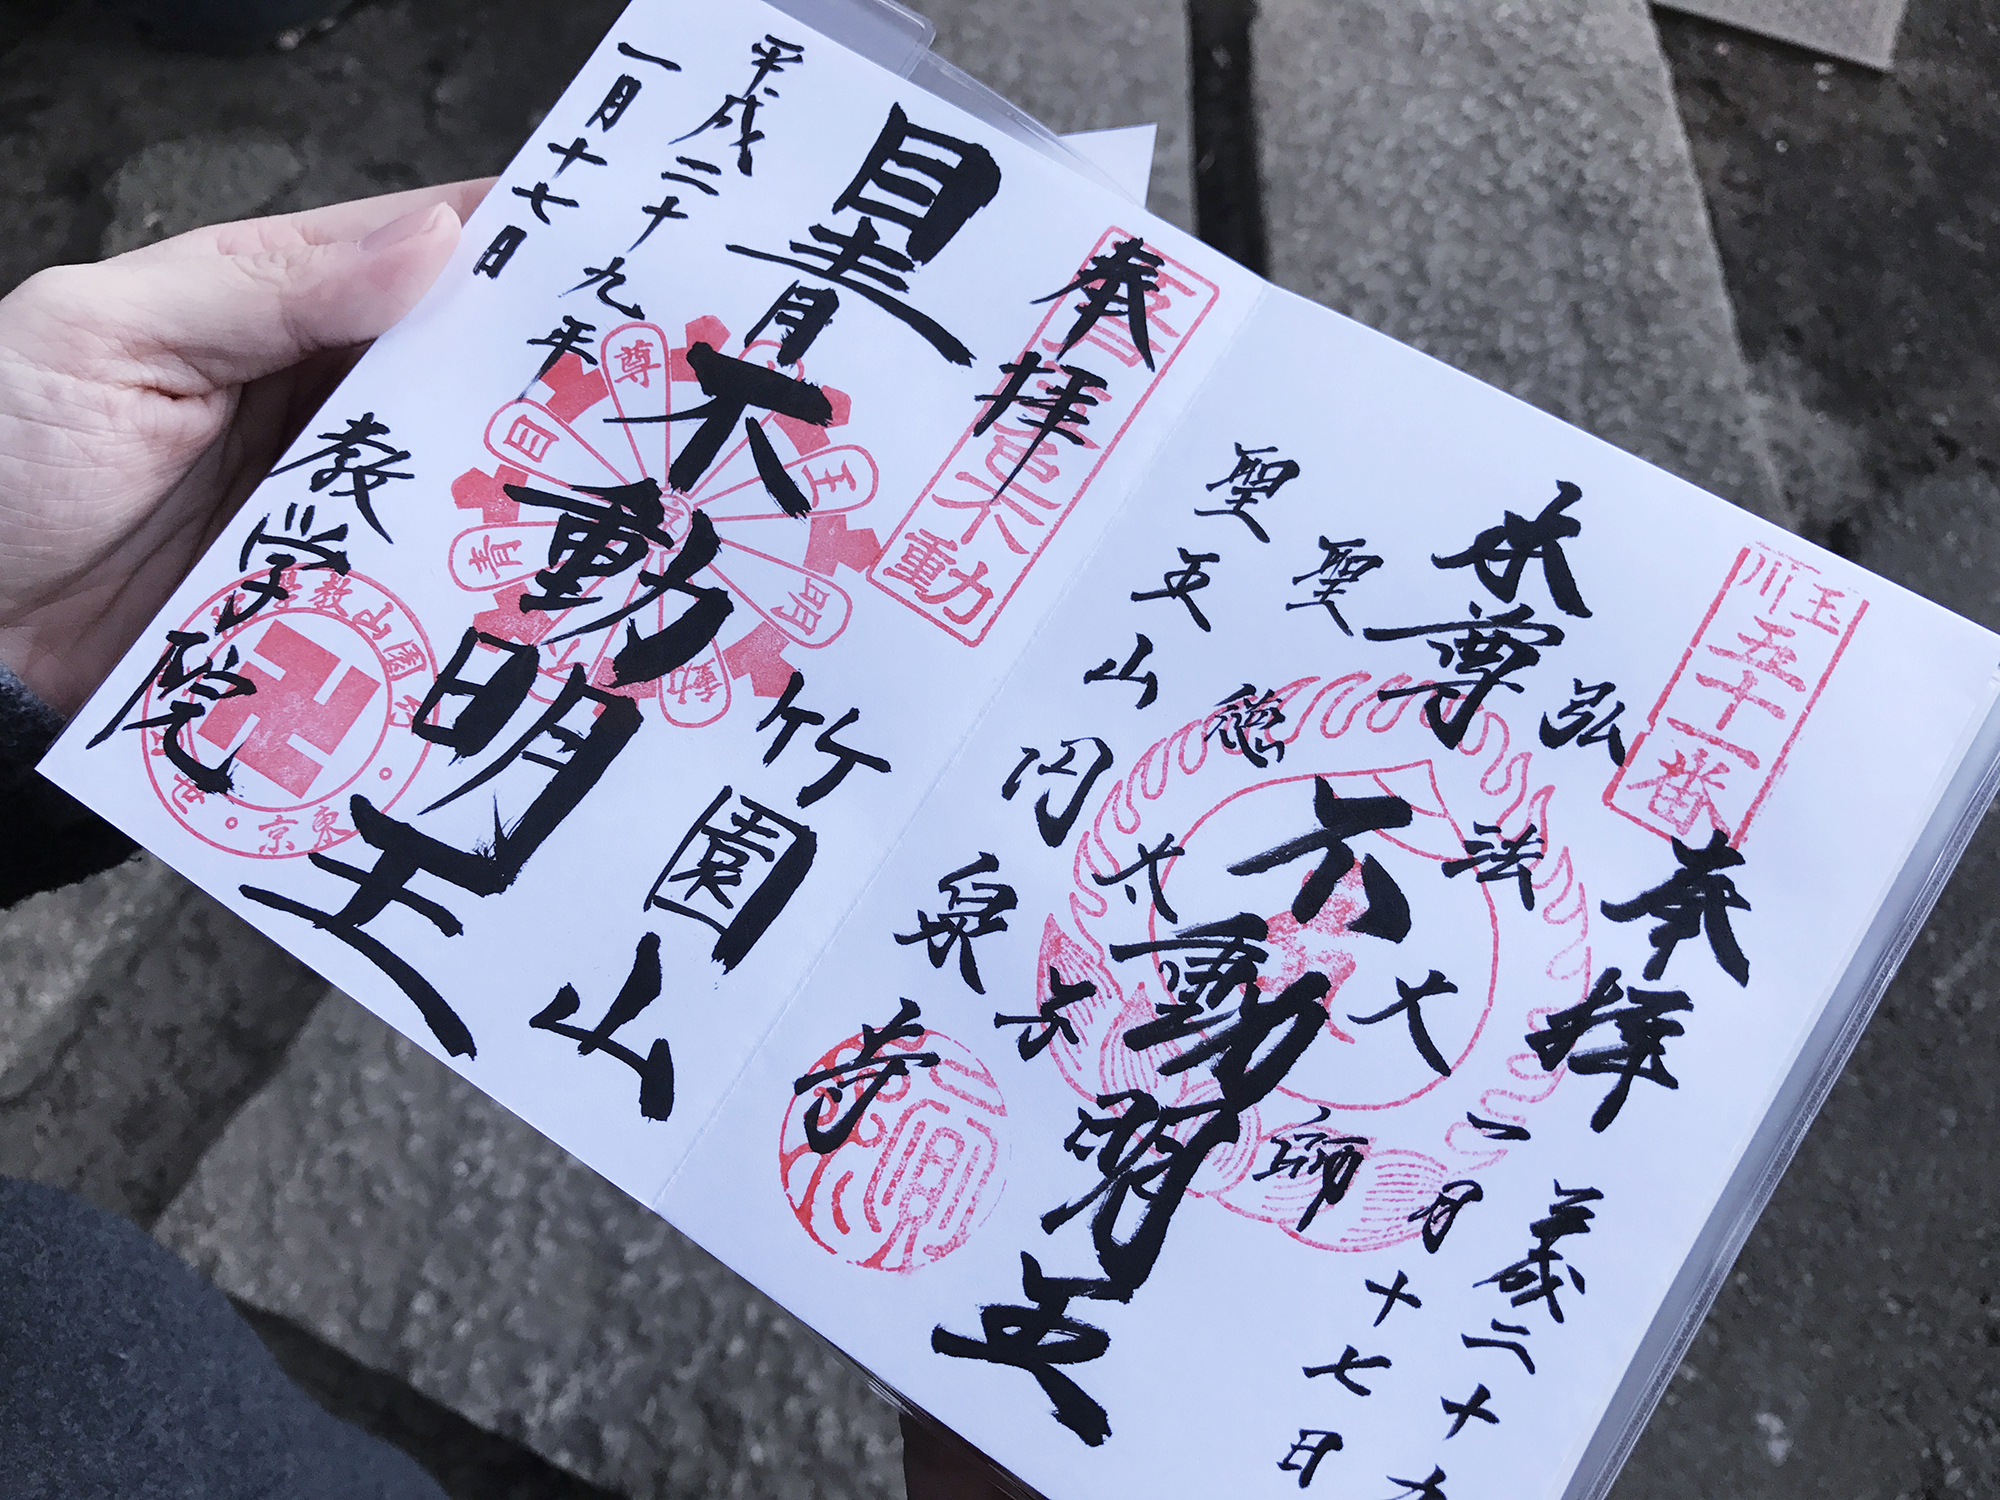 玉川
五十一番
奉拝
平成二十九
一月十七日
弘法大師
本尊
不動明王
聖徳太子
聖天山円泉寺
五色不動
奉拝
竹園山
目青不動明王
平成二十九年
一月十七日
教学院
東京